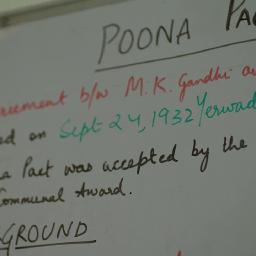 POONA PA
reement b/w M.K. Gandhi a
ed on Sept 24, 1932 Yerwad
a Pact was accepted by the
Communal Award.
GROUND